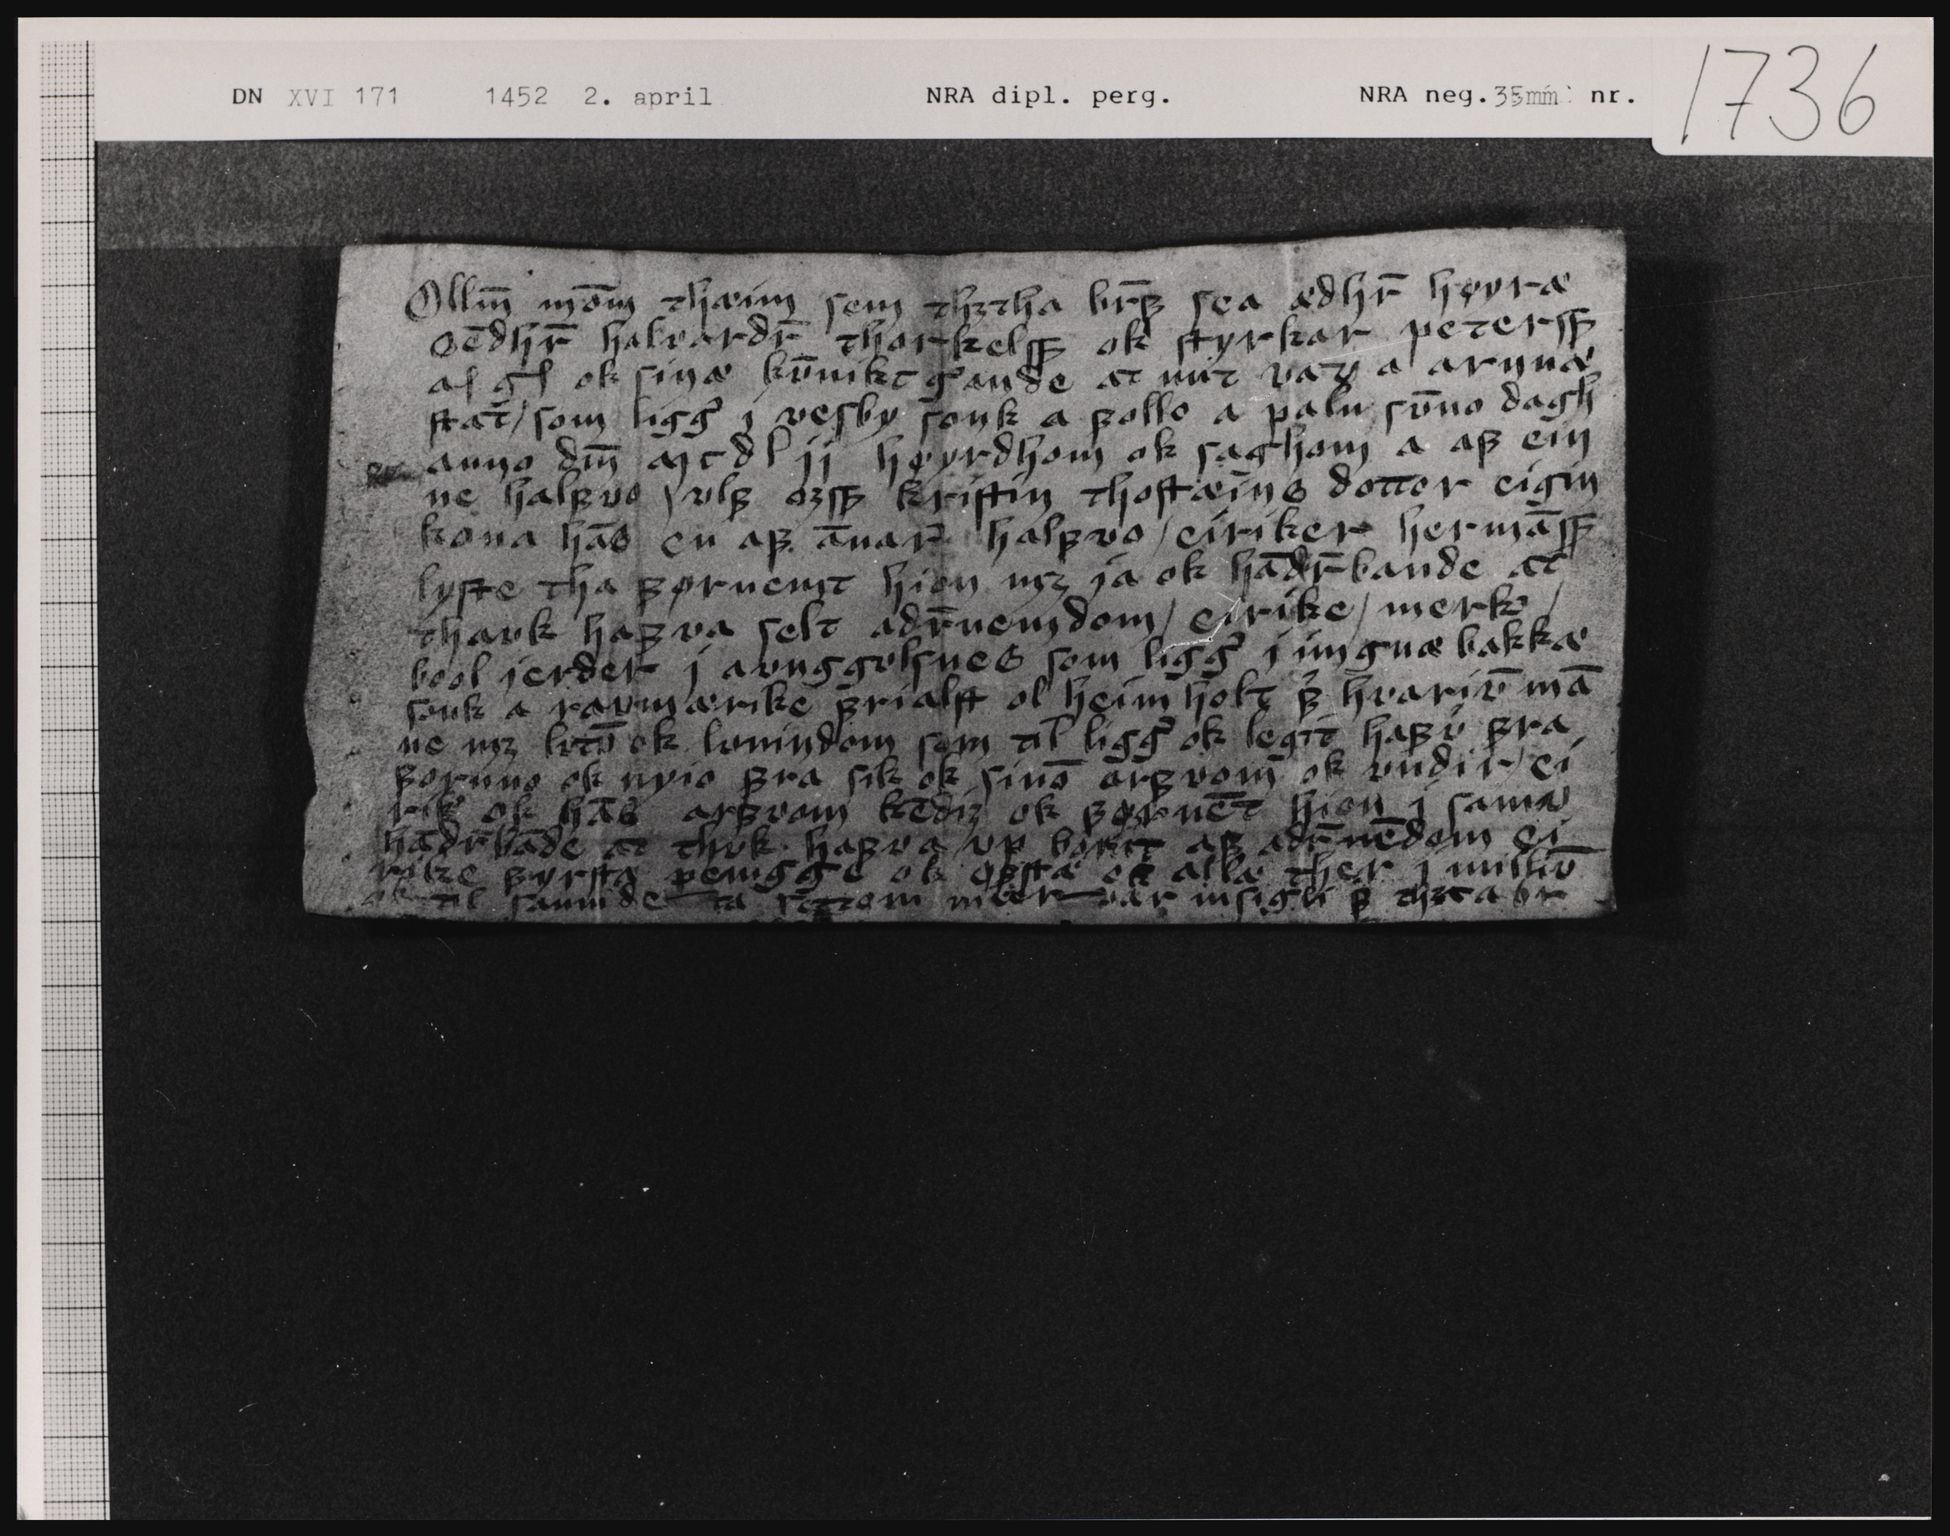 DN XVI 171 1452 2. april NRA dipl. perg. NRA neg. 35mm nr. 1736
Ollm̄ mōm thæim sem thꝫtha br̄ff sea ædhr̄ høyræ
Oēdhr̄ halvardr̄ thorkelss̄ ok styrkar peterss̄
q g ok sinæ kūnikt gande at mit varv a arnnæ
stat / som ligḡ j vesby sonk a follo a palm sv̄no dagh
anno dm̄ mcdl ij høyrdhom ok saghom a af ein
ne halfvo / vlf ozss̄ kristin thostæins dottor eigin
kona hās en af ānar halfvo / eiriker hermāss̄
lyste tha førnemt hion mꝫ ja ok hādr̄bande at
thavk hafva selt adr̄nemdom / eirike / merk
bool jerder j avnggvlsnes som ligḡ j ijngnæ bakkæ
sonk a ravmærike frialst ok heimholt f̄ hvariv̄ mā
ne mꝫ lvtū ok lvnindom som til ligḡ ok legit hafv̄ fra
fornno ok nyio fra sik ok sinō arfvom ok vndir / ei
rik ok hās arfvom kēdiz ok førnēt hion j samæ
hādr̄bāde at thvk hafva vp borit af adr̄nēdom ei
rike fyrsta penigge ok øfsta ok alla ther j millū
ok til sanninde ta settom mer var insigli f̄ thꝫta br